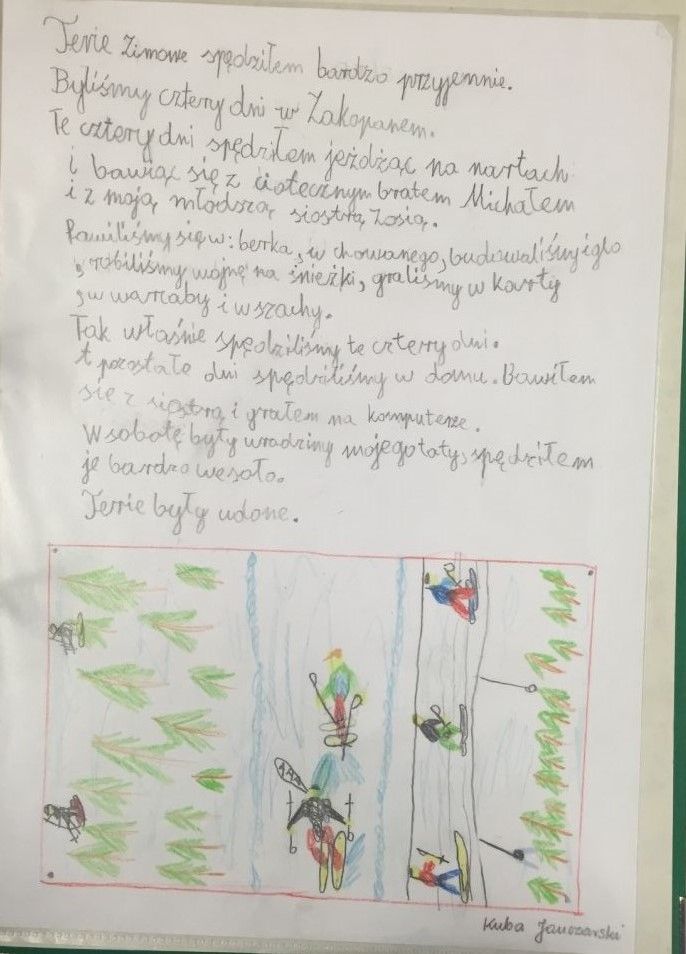 Ferie zimowe spędziłem bardzo przyjemnie.
Byliśmy cztery dni w Zakopanem.
Te cztery dni spędziłem jeżdżąc na nartach
i bawiąc się z ciotecznym bratem Michałem
i z moją młodszą siostrą Zosią.
Bawiliśmy się w: berka, w chowanego, budowaliśmy iglo
, robiliśmy wojnę na śnieżki, graliśmy w karty
, w warcaby i w szachy.
Tak właśnie spędziliśmy te czterry dni.
A pozostałe dni spędziliśmy w domu. Bawiłem
się z siostrą i grałem na komputerze.
W sobotę były urodziny mojego taty, spędziłem
je bardzo wesoło.
Ferie były udane.
Kuba Janczarski